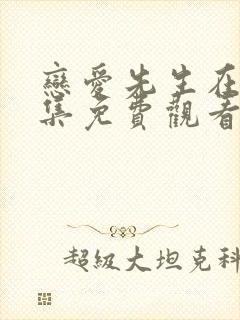 戀愛先生在
集免費觀看
超級大坦克科